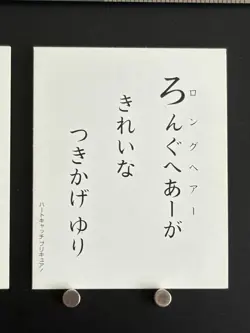 ろんぐへあーが
ロングヘアー
きれいな
つきかげ ゆり
ハートキャッチプリキュア!